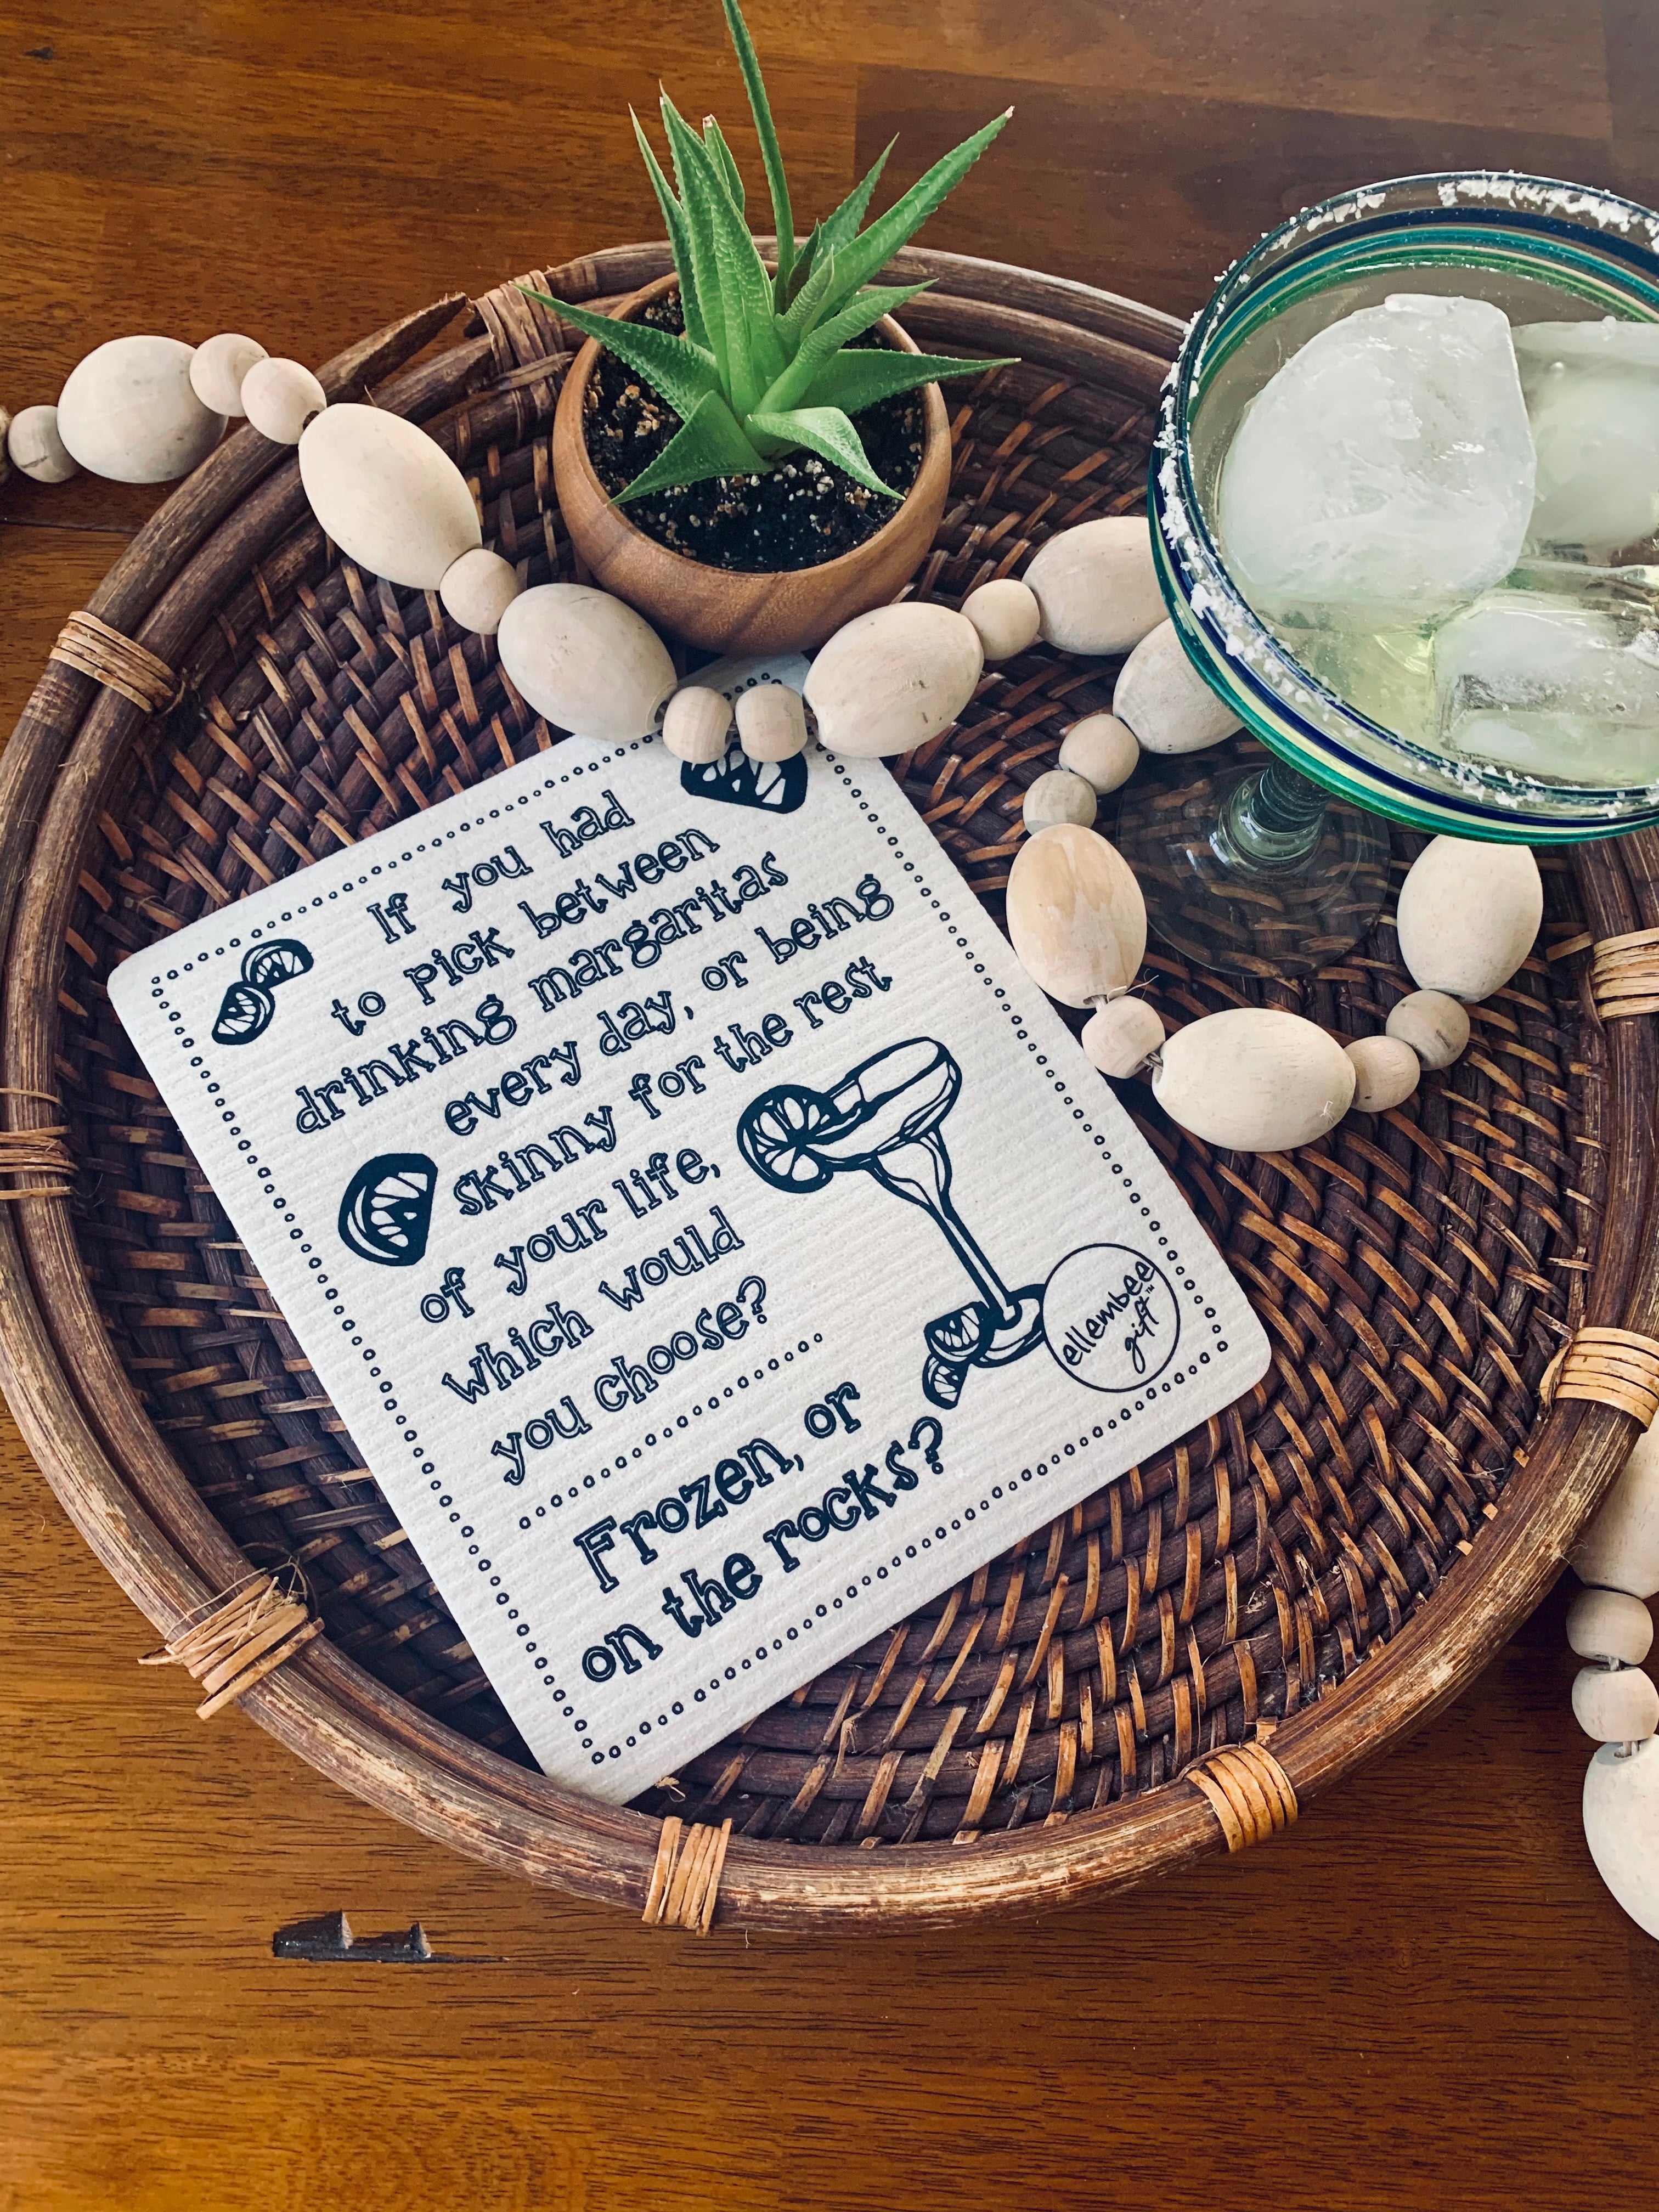 If you had
to pick between
drinking margaritas
every day, or being
skinny for the rest
of your life,
which would
you choose?
Frozen, or
on the rocks?
ellembee
gift™